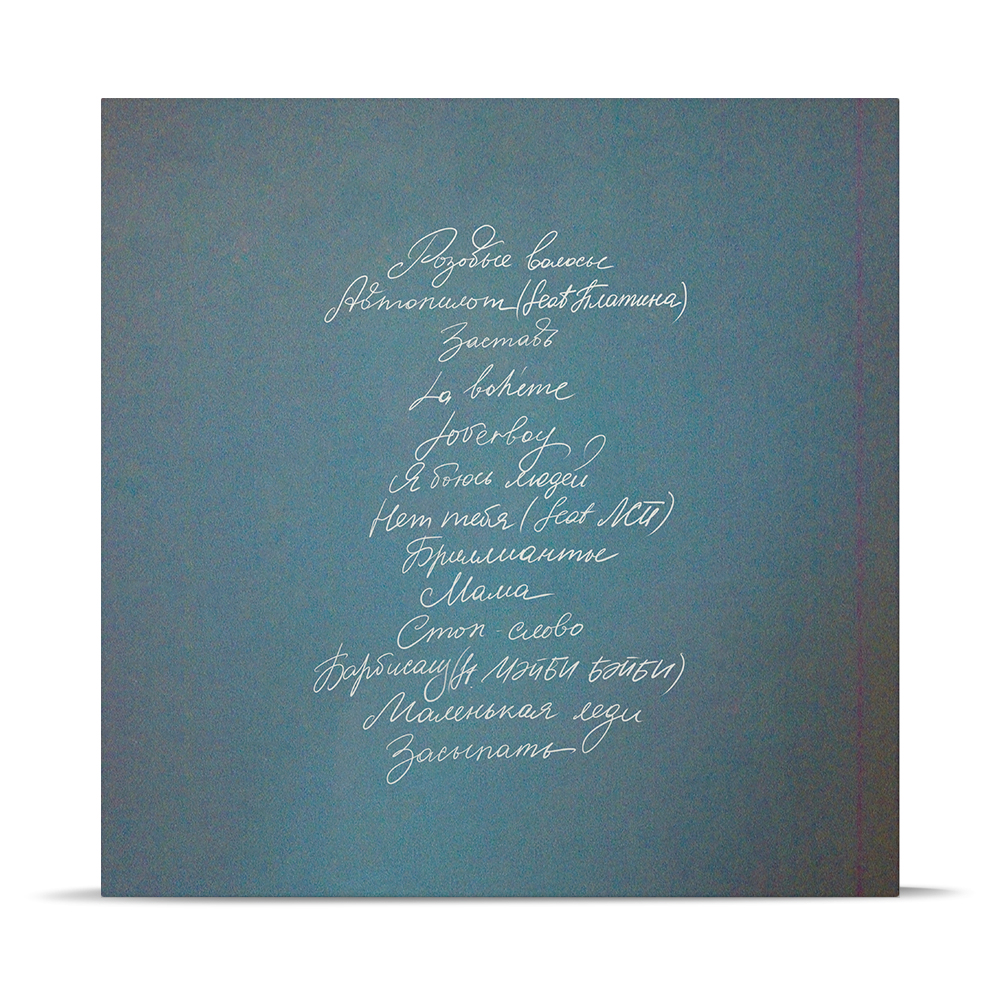 Розовые волосы
Автопилот (feat Платина)
Заставь
La bohéme
Loverboy
Я боюсь людей
Нет тебя (feat ЛСП)
Бриллианты
Мама
Стоп-слово
Барбисайз (ft. МЭЙБИ БЭЙБИ)
Маленькая леди
Засыпать